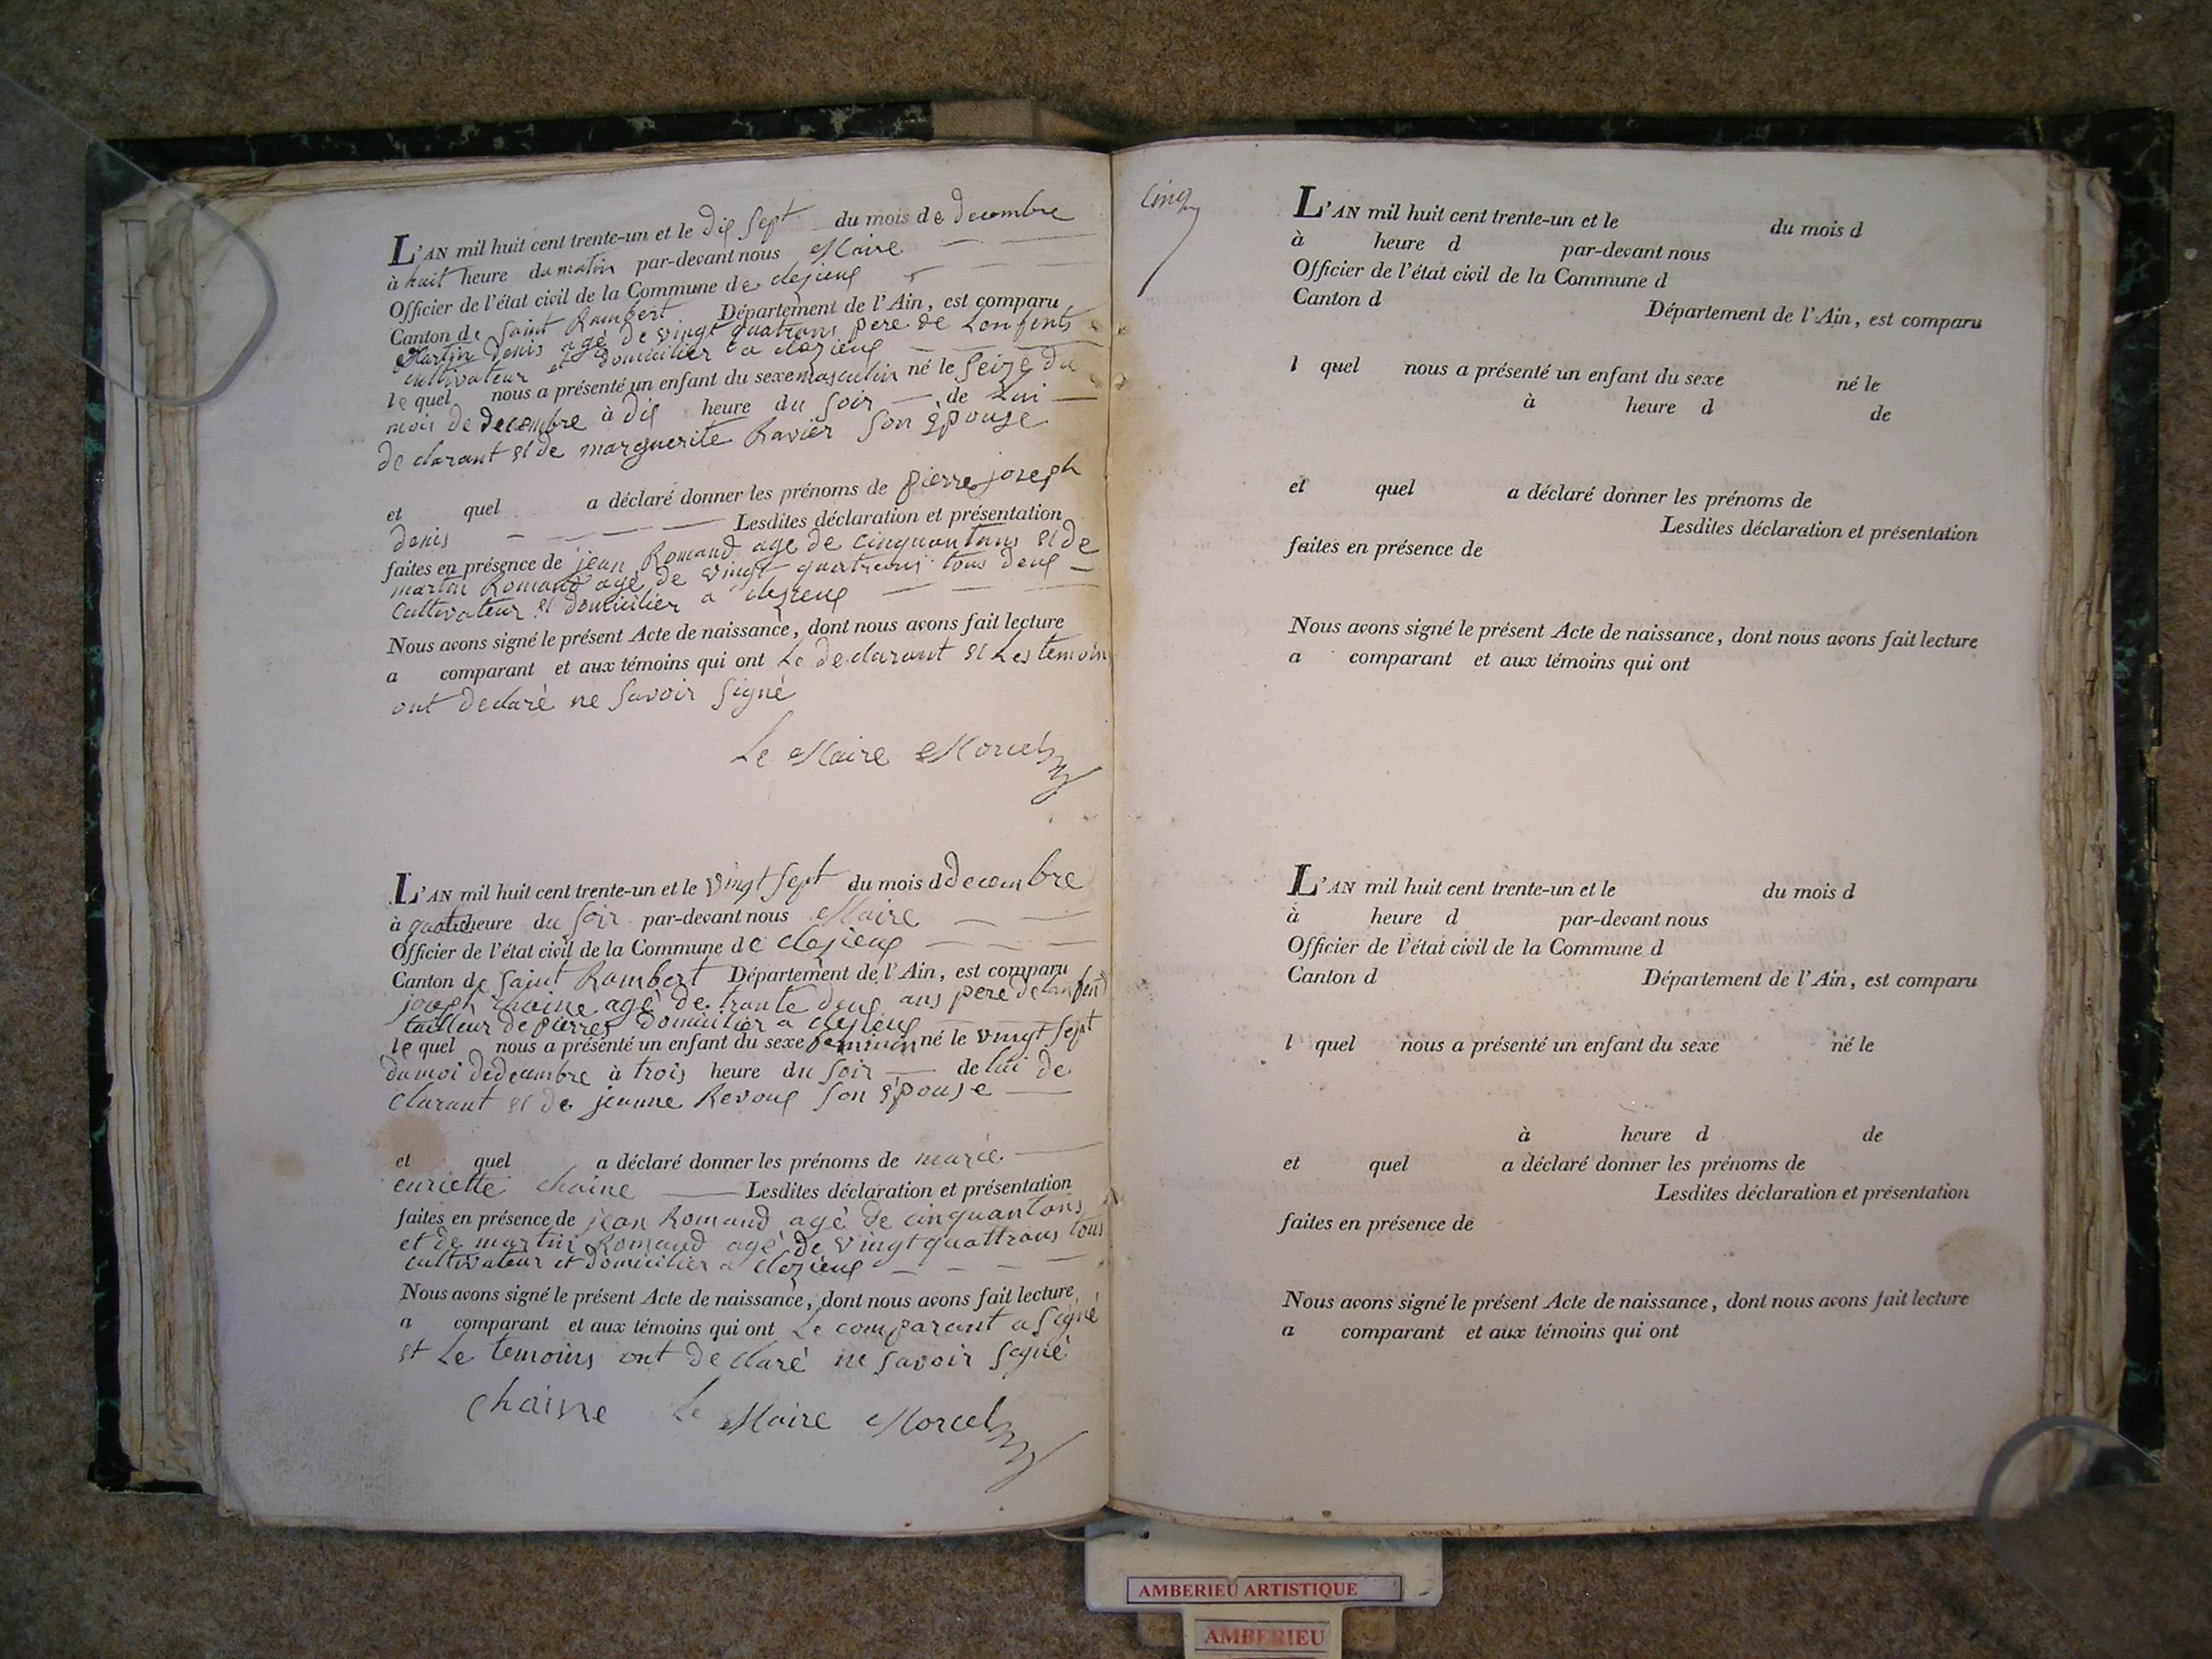 L'AN mil huit cent trente-un et le dix sept du mois de decembre
à huit heure du matin par-devant nous Maire
Officier de l'état civil de la Commune de clezieux
Canton de saint Rambert Département de l'Ain, est comparu
Martin denis agé de vingt quatrans pere de Lenfents
cultivateur et domicilier a clezieux
le quel nous a présenté un enfant du sexe masculin né le seize du
mois de decembre à dix heure du soir de Lui
de clarant et de marguerite Ravier son épouse
et quel a déclaré donner les prénoms de pierre joseph
denis Lesdites déclaration et présentation
faites en présence de jean Romand age de cinquantans et de
martin Romand agé de vingt quatrans tous deux
cultivateur et domicilier a clezieux
Nous avons signé le présent Acte de naissance, dont nous avons fait lecture
a comparant et aux témoins qui ont Le declarant et Les temoin
ont declaré ne savoir signé
Le Maire Morcel
L'AN mil huit cent trente-un et le vingt sept du mois d decembre
à quatre heure du soir par-devant nous Maire
Officier de l'état civil de la Commune de clezieux
Canton de saint Rambert Département de l'Ain, est comparu
joseph chaine agé de trante deux ans pere de Lenfent
tailleur de pierres domicilier a clezieux
le quel nous a présenté un enfant du sexe feminin né le vingt sept
du moi de decembre à trois heure du soir de lui de
clarant et de jeanne Revoux son épouse
et quel a déclaré donner les prénoms de marie
enriette chaine Lesdites déclaration et présentation
faites en présence de jean Romand agé de cinquantans
et de martin Romand agé de vingtquattrans tous
cultivateur et domicilier a clezieux
Nous avons signé le présent Acte de naissance, dont nous avons fait lecture
a comparant et aux témoins qui ont Le comparant a signé
et Le temoins ont declaré ne savoir signé
chaine Le Maire Morcel
cinq
L'AN mil huit cent trente-un et le du mois d
à heure d par-devant nous
Officier de l'état civil de la Commune d
Canton d Département de l'Ain, est comparu
l quel nous a présenté un enfant du sexe né le
à heure d de
et quel a déclaré donner les prénoms de
Lesdites déclaration et présentation
faites en présence de
Nous avons signé le présent Acte de naissance, dont nous avons fait lecture
a comparant et aux témoins qui ont
L'AN mil huit cent trente-un et le du mois d
à heure d par-devant nous
Officier de l'état civil de la Commune d
Canton d Département de l'Ain, est comparu
l quel nous a présenté un enfant du sexe né le
à heure d de
et quel a déclaré donner les prénoms de
Lesdites déclaration et présentation
faites en présence de
Nous avons signé le présent Acte de naissance, dont nous avons fait lecture
a comparant et aux témoins qui ont
AMBERIEU ARTISTIQUE
AMBERIEU